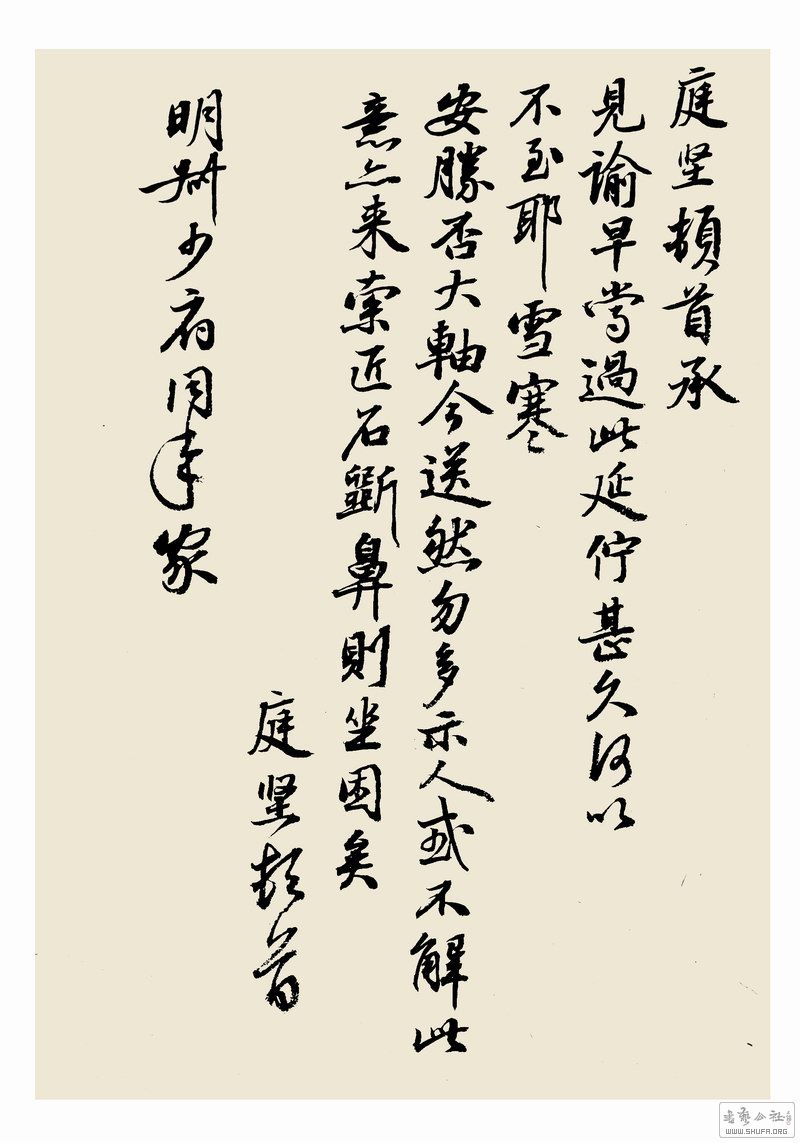 庭坚頓首承
見諭早嘗過此延佇甚久何以
不至耶雪寒
安勝否大軸今送然勿多示人或不解此
意亦来索匠石斵鼻則坐困矣
庭坚頓首
明叔少府同年家
書藝公社
WWW.SHUFA.ORG